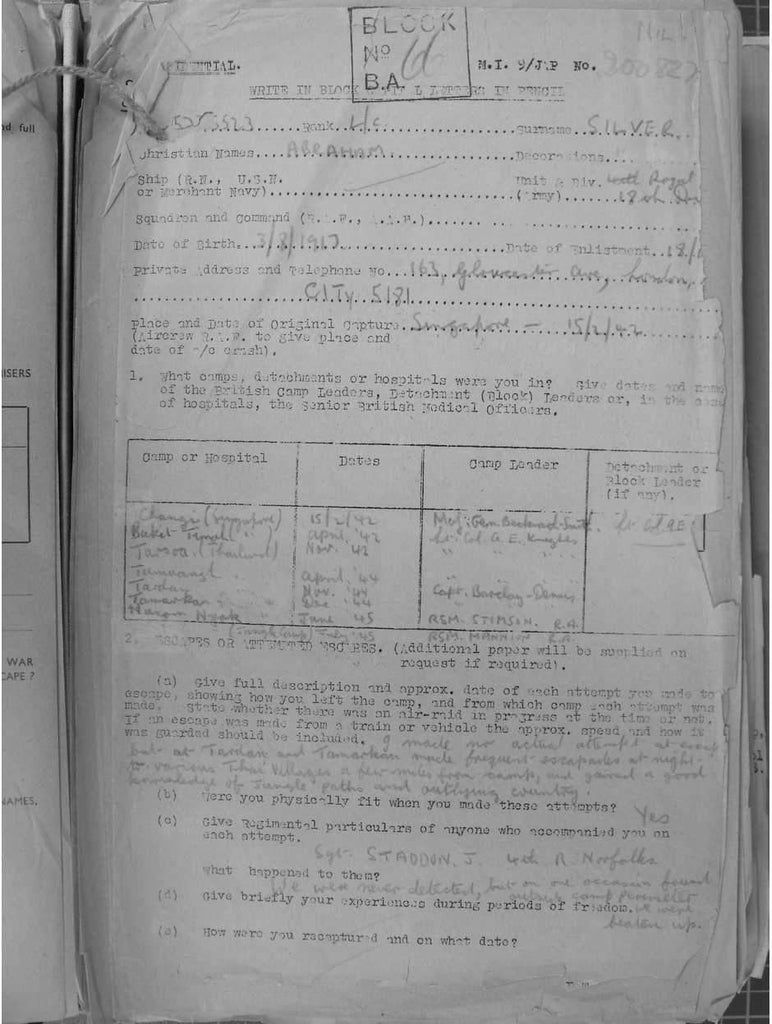 BLOCK
No 66
B.A
NIL
M.I. 9/JAP No.
WRITE IN BLOCK LETTERS IN PENCIL
Rank L/c Surname SILVER
Christian Names ABRAHAM Decorations
Ship (R.N., U.S.N. Unit & Div. 4th Royal
or Merchant Navy) (Army) 18th
Squadron and Command (R.A.F., A.A.F.)
Date of Birth 3/8/1917 Date of Enlistment 18/
Private Address and Telephone No. 163, Gloucester Ave, London,
CITY 5181
Place and Date of Original Capture Singapore - 15/2/42
(Aircrew R.A.F. to give place and
date of a/c crash).
1. What camps, detachments or hospitals were you in? Give dates and name
of the British Camp Leaders, Detachment (Block) Leaders or, in the case
of hospitals, the Senior British Medical Officers.
Camp or Hospital Dates Camp Leader Detachment or
Block Leader
(if any).
Changi (Singapore) 15/2/42 Maj. Gen. Beckwith-Smith Lt Col AE
April '42 Lt. Col. A. E. Knights
(Thailand) Nov. 42 " "
April '44
Tardan Nov. '44 Capt. Barclay-
Tamarkan Dec '44
June 45 RSM. STIMSON R.A.
(Jungle Camp) July '45 RSM. MANNION R.A.
2. ESCAPES OR ATTEMPTED ESCAPES. (Additional paper will be supplied on
request if required).
(a) Give full description and approx. date of each attempt you made to
escape, showing how you left the camp, and from which camp each attempt was
made. State whether there was an air-raid in progress at the time or not.
If an escape was made from a train or vehicle the approx. speed and how it
was guarded should be included. I made no actual attempt at escape
but at Tardan and Tamarkan made frequent escapades at night
to various Thai Villages a few miles from camp, and gained a good
knowledge of jungle paths and outlying country.
(b) Were you physically fit when you made these attempts? Yes
(c) Give Regimental particulars of anyone who accompanied you on
each attempt.
Sgt. STADDON. J. 4th R. Norfolks
What happened to them?
We were never detected, but on one occasion found
outside camp perimeter
(d) Give briefly your experiences during periods of freedom. we were
beaten up.
(e) How were you recaptured and on what date?
ISERS
WAR
CAPE ?
NAMES.
nd full